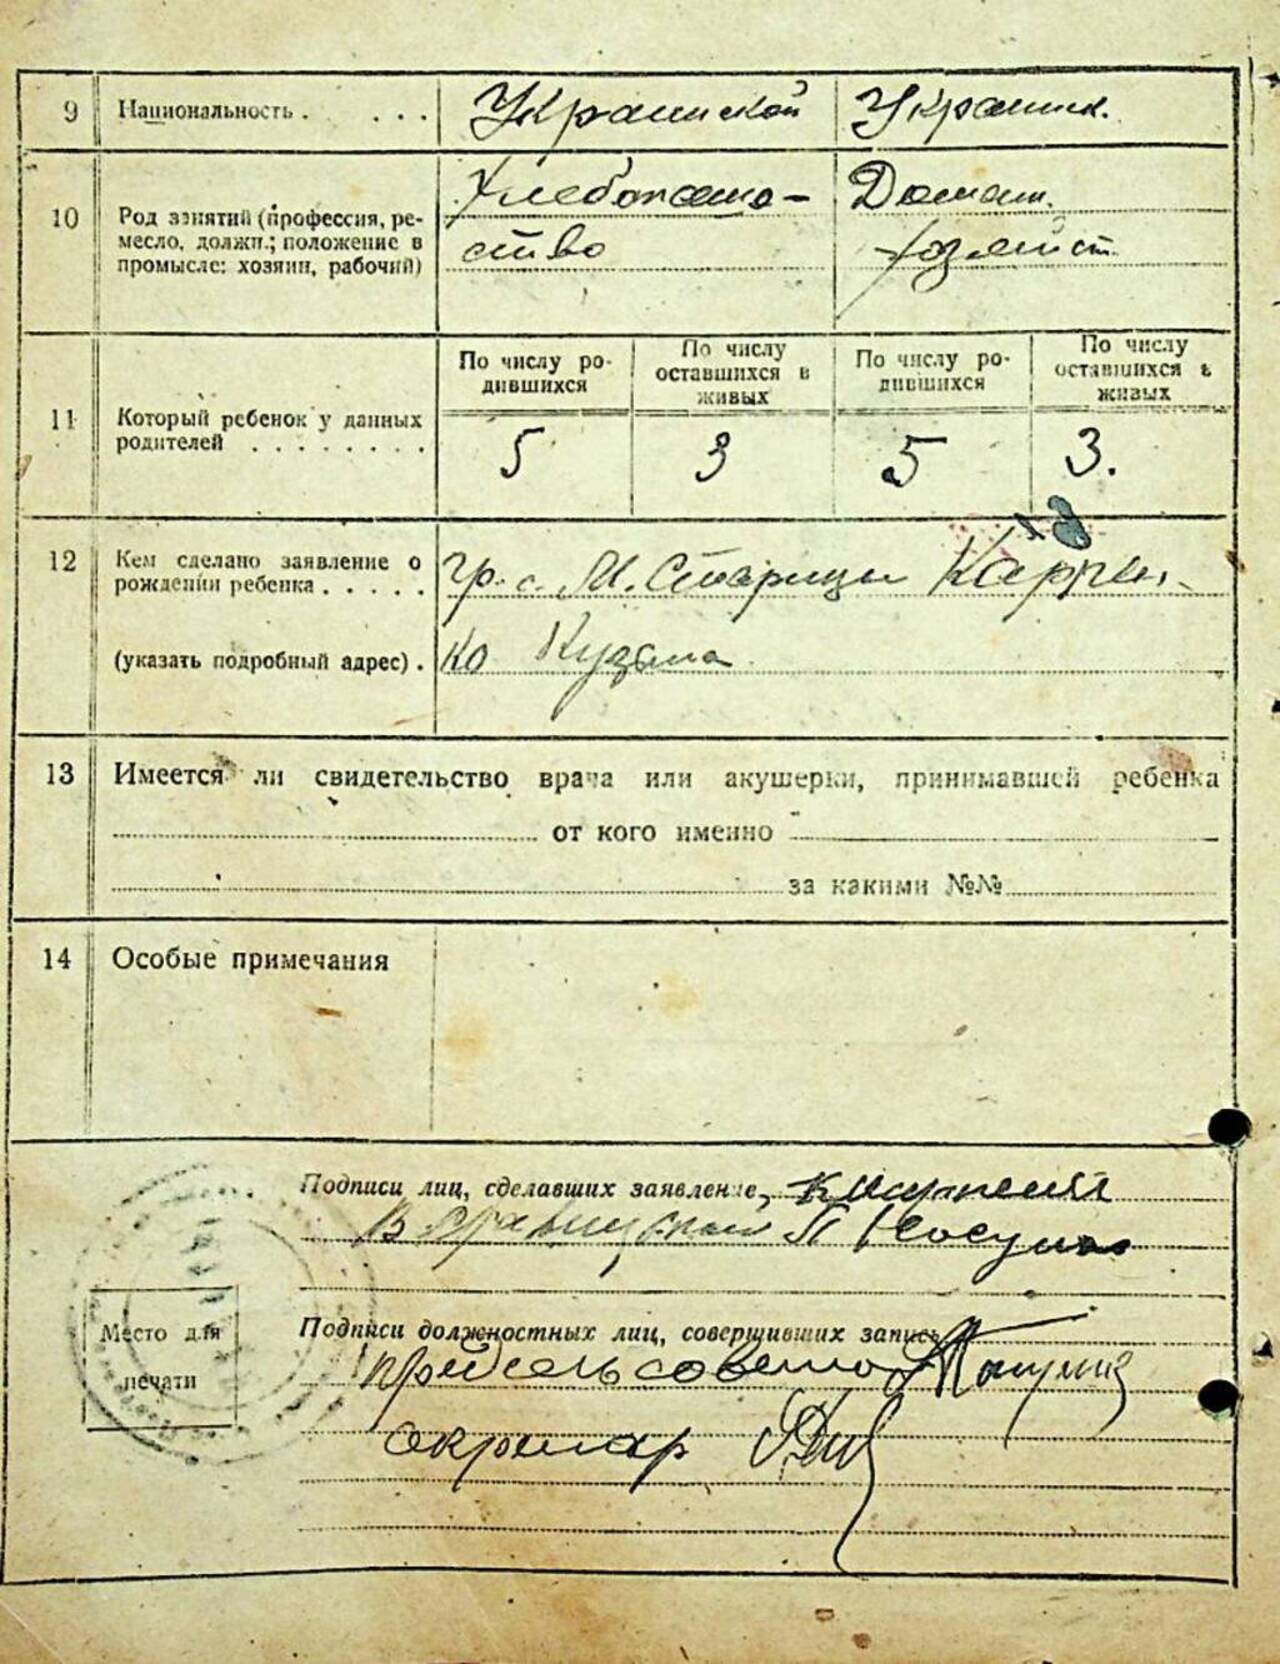 9 Национальность . . . . . Украинской Украинск.
10 Род занятий (профессия, ре-
месло, должн.; положение в
промысле: хозяин, рабочий)
Хлебопаше-
ство
Домаш.
хозяйст.
11 Который ребенок у данных
родителей . . . . . . . .
По числу ро-
дившихся
По числу
оставшихся в
живых
По числу ро-
дившихся
По числу
оставшихся в
живых
5 3 5 3.
12 Кем сделано заявление о
рождении ребенка . . . . .
(указать подробный адрес) .
гр. с. М. Старицы Карпен-
ко Кузьма
13 Имеется ли свидетельство врача или акушерки, принимавшей ребенка
от кого именно
за какими №№
14 Особые примечания
Подписи лиц, сделавших заявление,
Место для
печати
Подписи должностных лиц, совершивших запись
предсельсовета
секретар